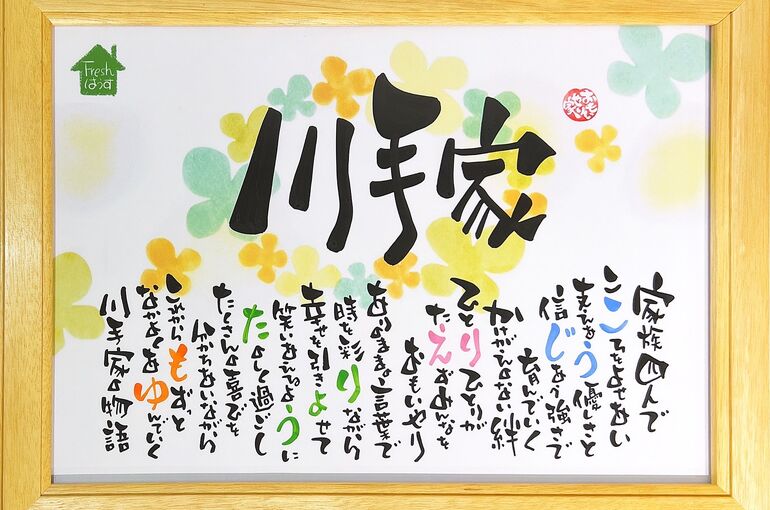 Fresh
はうす
川手家
家族四人で
こころをよせあい
支えあう優しさと
信じあう強さで
育んでいく
かけがえのない絆
ひとりひとりが
たえずみんなを
おもいやり
ありのままな言葉で
時を彩りながら
幸せを引きよせて
笑いあえるように
たのしく過ごし
たくさんの喜びを
分かちあいながら
これからもずっと
なかよくあゆんでいく
川手家の物語